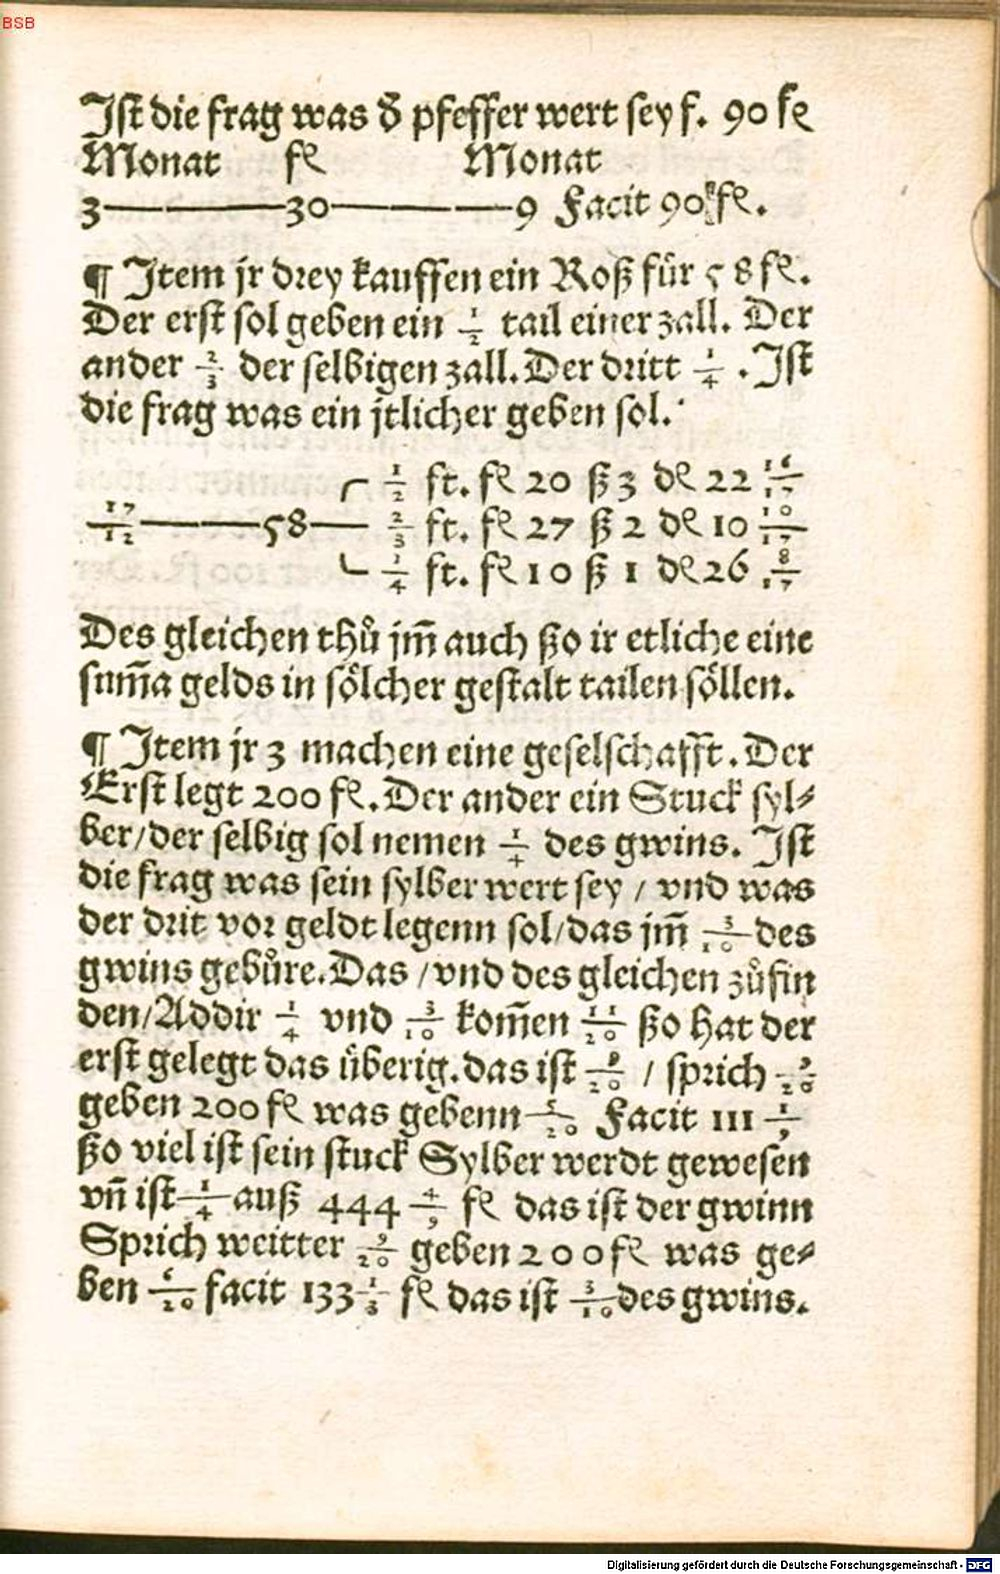 BSB
Ist die frag was ð pfeffer wert sey f. 90 fl
Monat fl Monat
3——30——9 Facit 90 fl.
¶ Item jr drey kauffen ein Roß für 58 fl.
Der erst sol geben ein 1/2 tail einer zall. Der
ander 2/3 der selbigen zall. Der dritt 1/4. Ist
die frag was ein jtlicher geben sol.
1/2 ft. fl 20 ß 3 dl 22 16/17
17/12——58—— 2/3 ft. fl 27 ß 2 dl 10 10/17
1/4 ft. fl 10 ß 1 dl 26 8/17
Des gleichen thů jm̄ auch ßo ir etliche eine
sum̄a gelds in sölcher gestalt tailen söllen.
¶ Item jr 3 machen eine geselschafft. Der
Erst legt 200 fl. Der ander ein Stuck syl⸗
ber/der selbig sol nemen 1/4 des gwins. Ist
die frag was sein sylber wert sey / vnd was
der drit vor geldt legenn sol/das jm̄ 3/10 des
gwins gebůre. Das /vnd des gleichen zůfin
den/Addir 1/4 vnd 3/10 kom̄en 11/20 ßo hat der
erst gelegt das überig. das ist 9/20 / sprich 9/20
geben 200 fl was gebenn 5/20 Facit 111 1/9
ßo viel ist sein stuck Sylber werdt gewesen
vn̄ ist 1/4 auß 444 4/9 fl das ist der gwinn
Sprich weitter 9/20 geben 200 fl was ge⸗
ben 6/20 facit 133 1/3 fl das ist 3/10 des gwins.
Digitalisierung gefördert durch die Deutsche Forschungsgemeinschaft - DFG